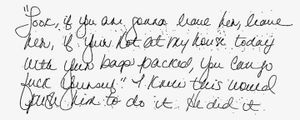 "Look, if you are gonna leave her, leave
her, if your not at my house today
with your bags packed, you can go
fuck yourself" I knew this would
push him to do it. He did it